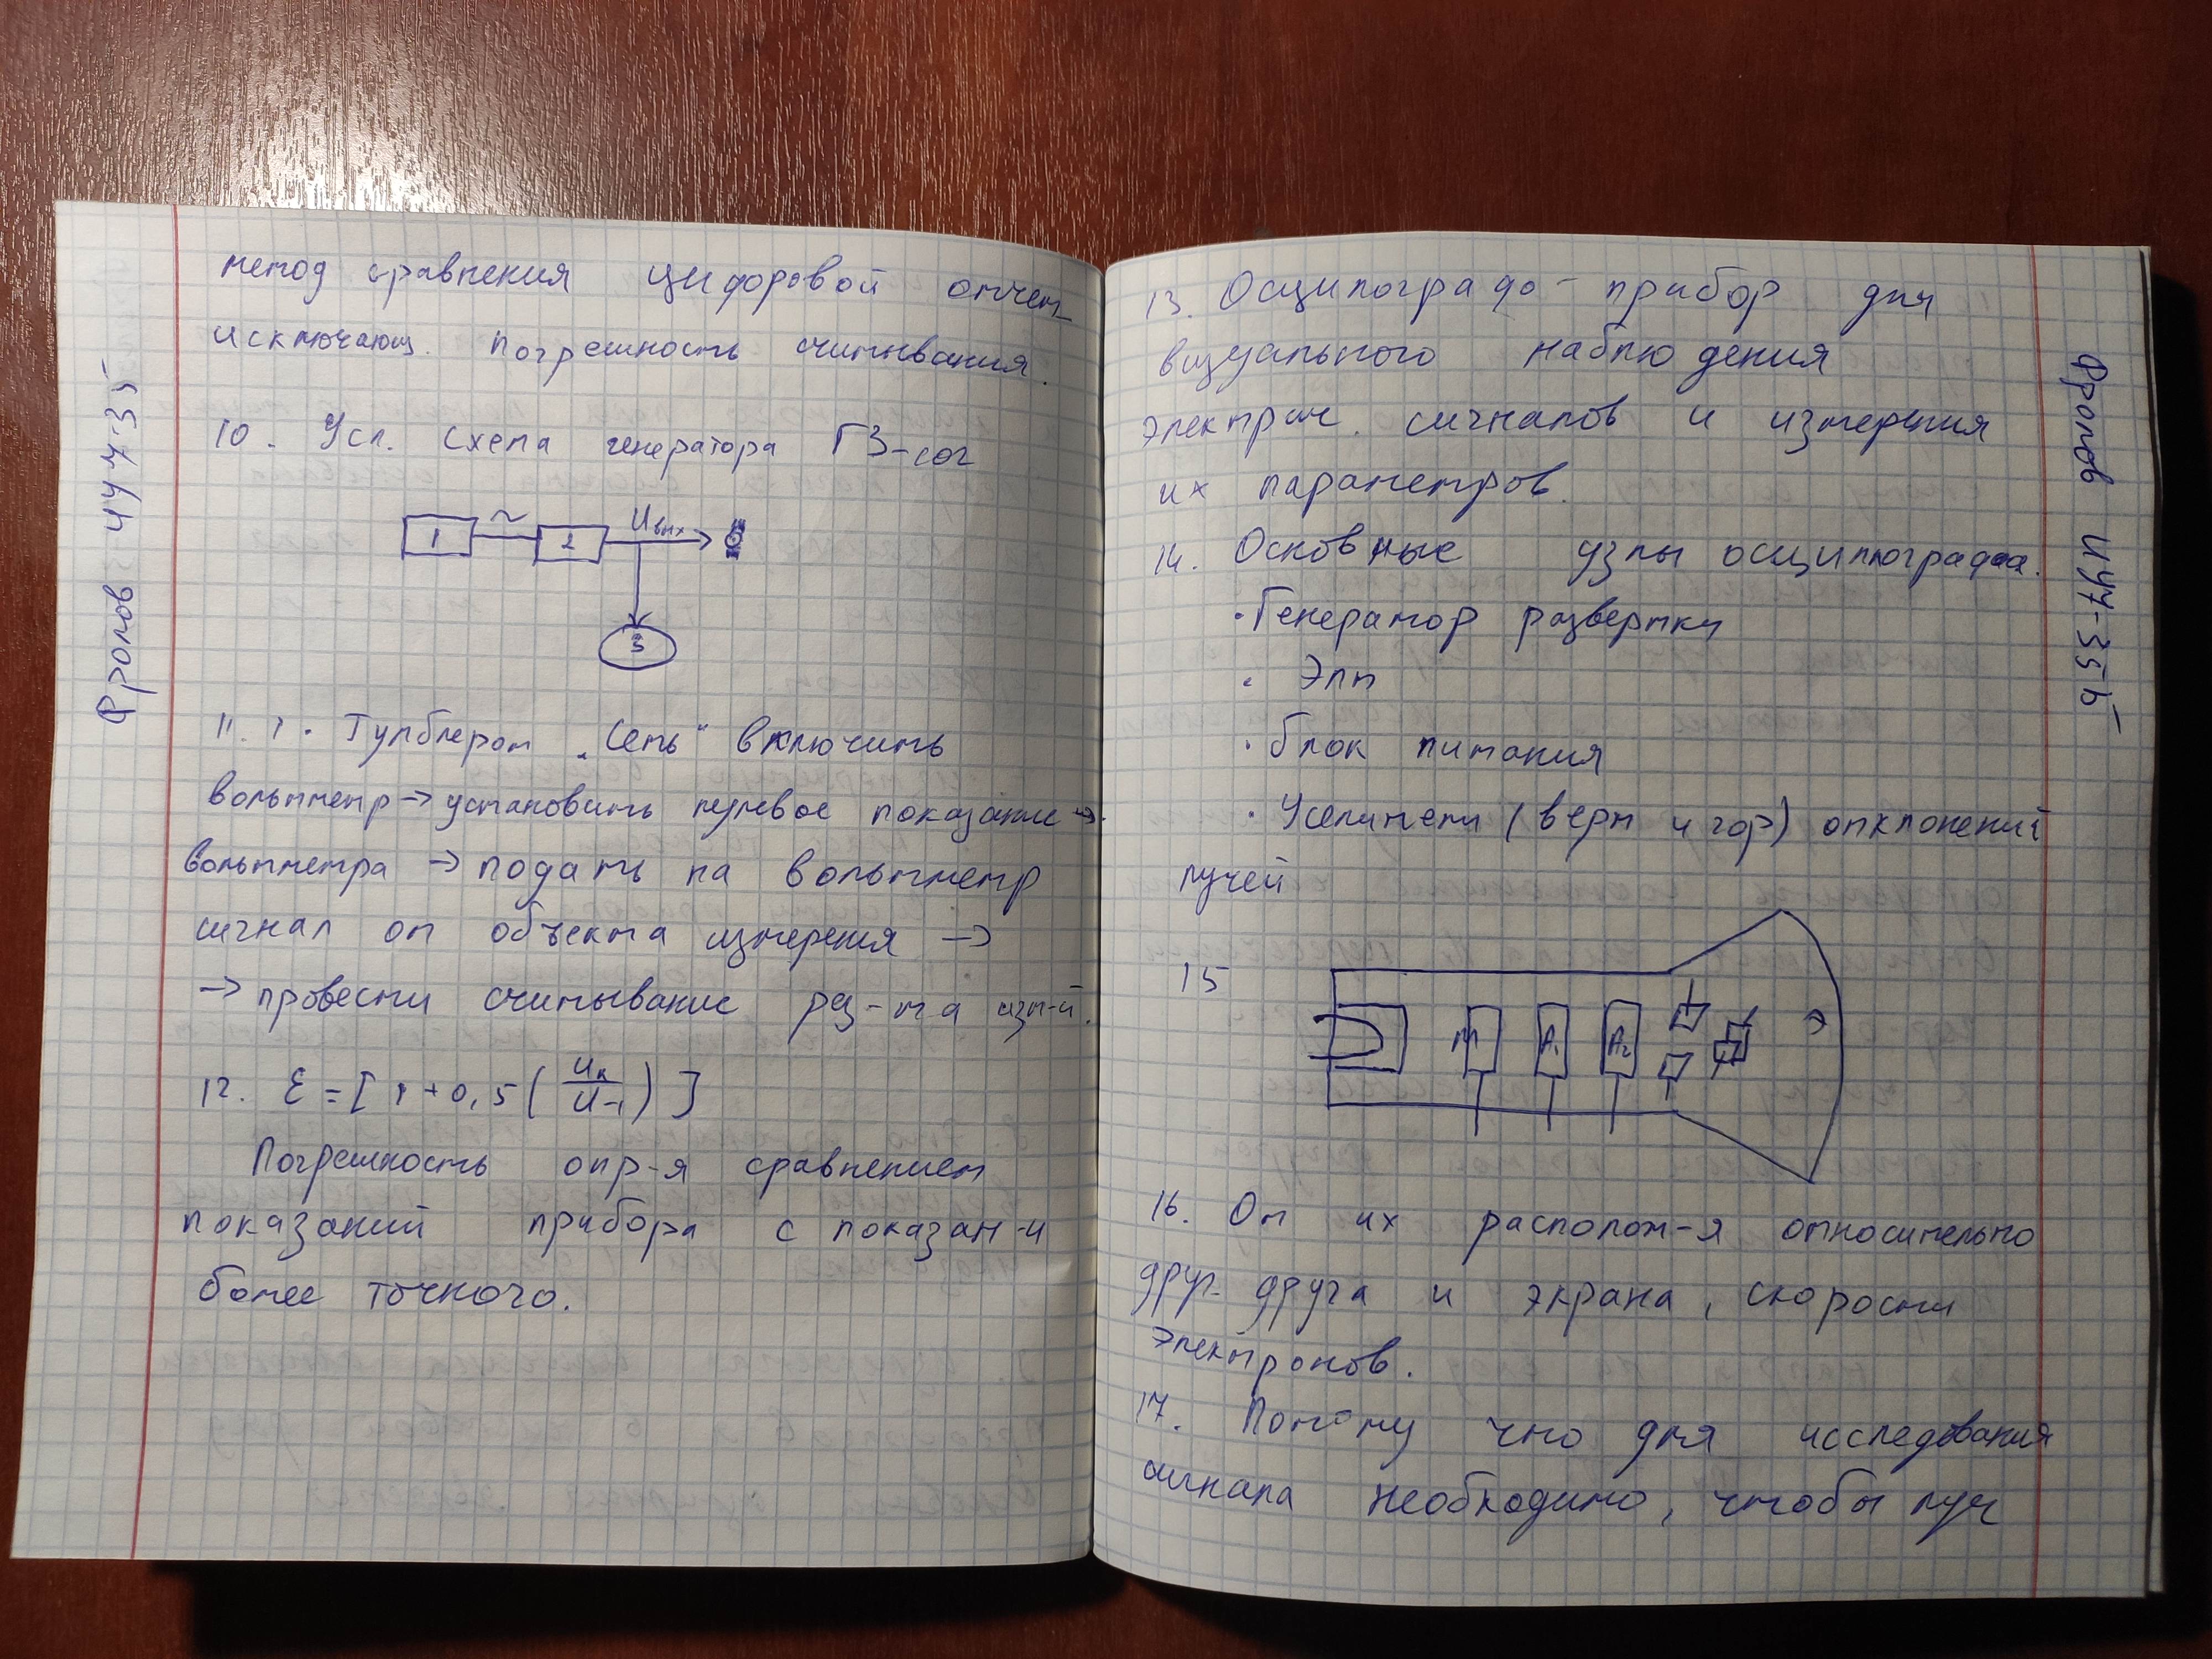 метод сравнения цифровой отчет
исключающ. погрешность считывания.
10. Усл. схема генератора ГЗ-
1 ~ 2 Uвых
3
11. 1. Тумблером „Сеть" включить
вольтметр → установить нулевое показание →
вольтметра → подать на вольтметр
сигнал от объекта измерения →
→ провести считывание рез-та изм-й.
12. ε = [1 + 0,5 (Uк/U-1)]
Погрешность опр-я сравнением
показаний прибора с показан-и
более точного.
Фролов ИУ7-35
13. Осцилограф - прибор для
визуального наблюдения
электрич. сигналов и измерения
их параметров.
14. Основные узлы осциллографа.
· Генератор развертки
· Элт
· блок питания
· Усилители (верт и гор) отклонений
лучей
15
М А1 А2 Э
16. От их располож-я относительно
друг друга и экрана, скорости
электронов.
17. Потому что для исследования
сигнала необходимо, чтобы луч
Фролов ИУ7-35Б